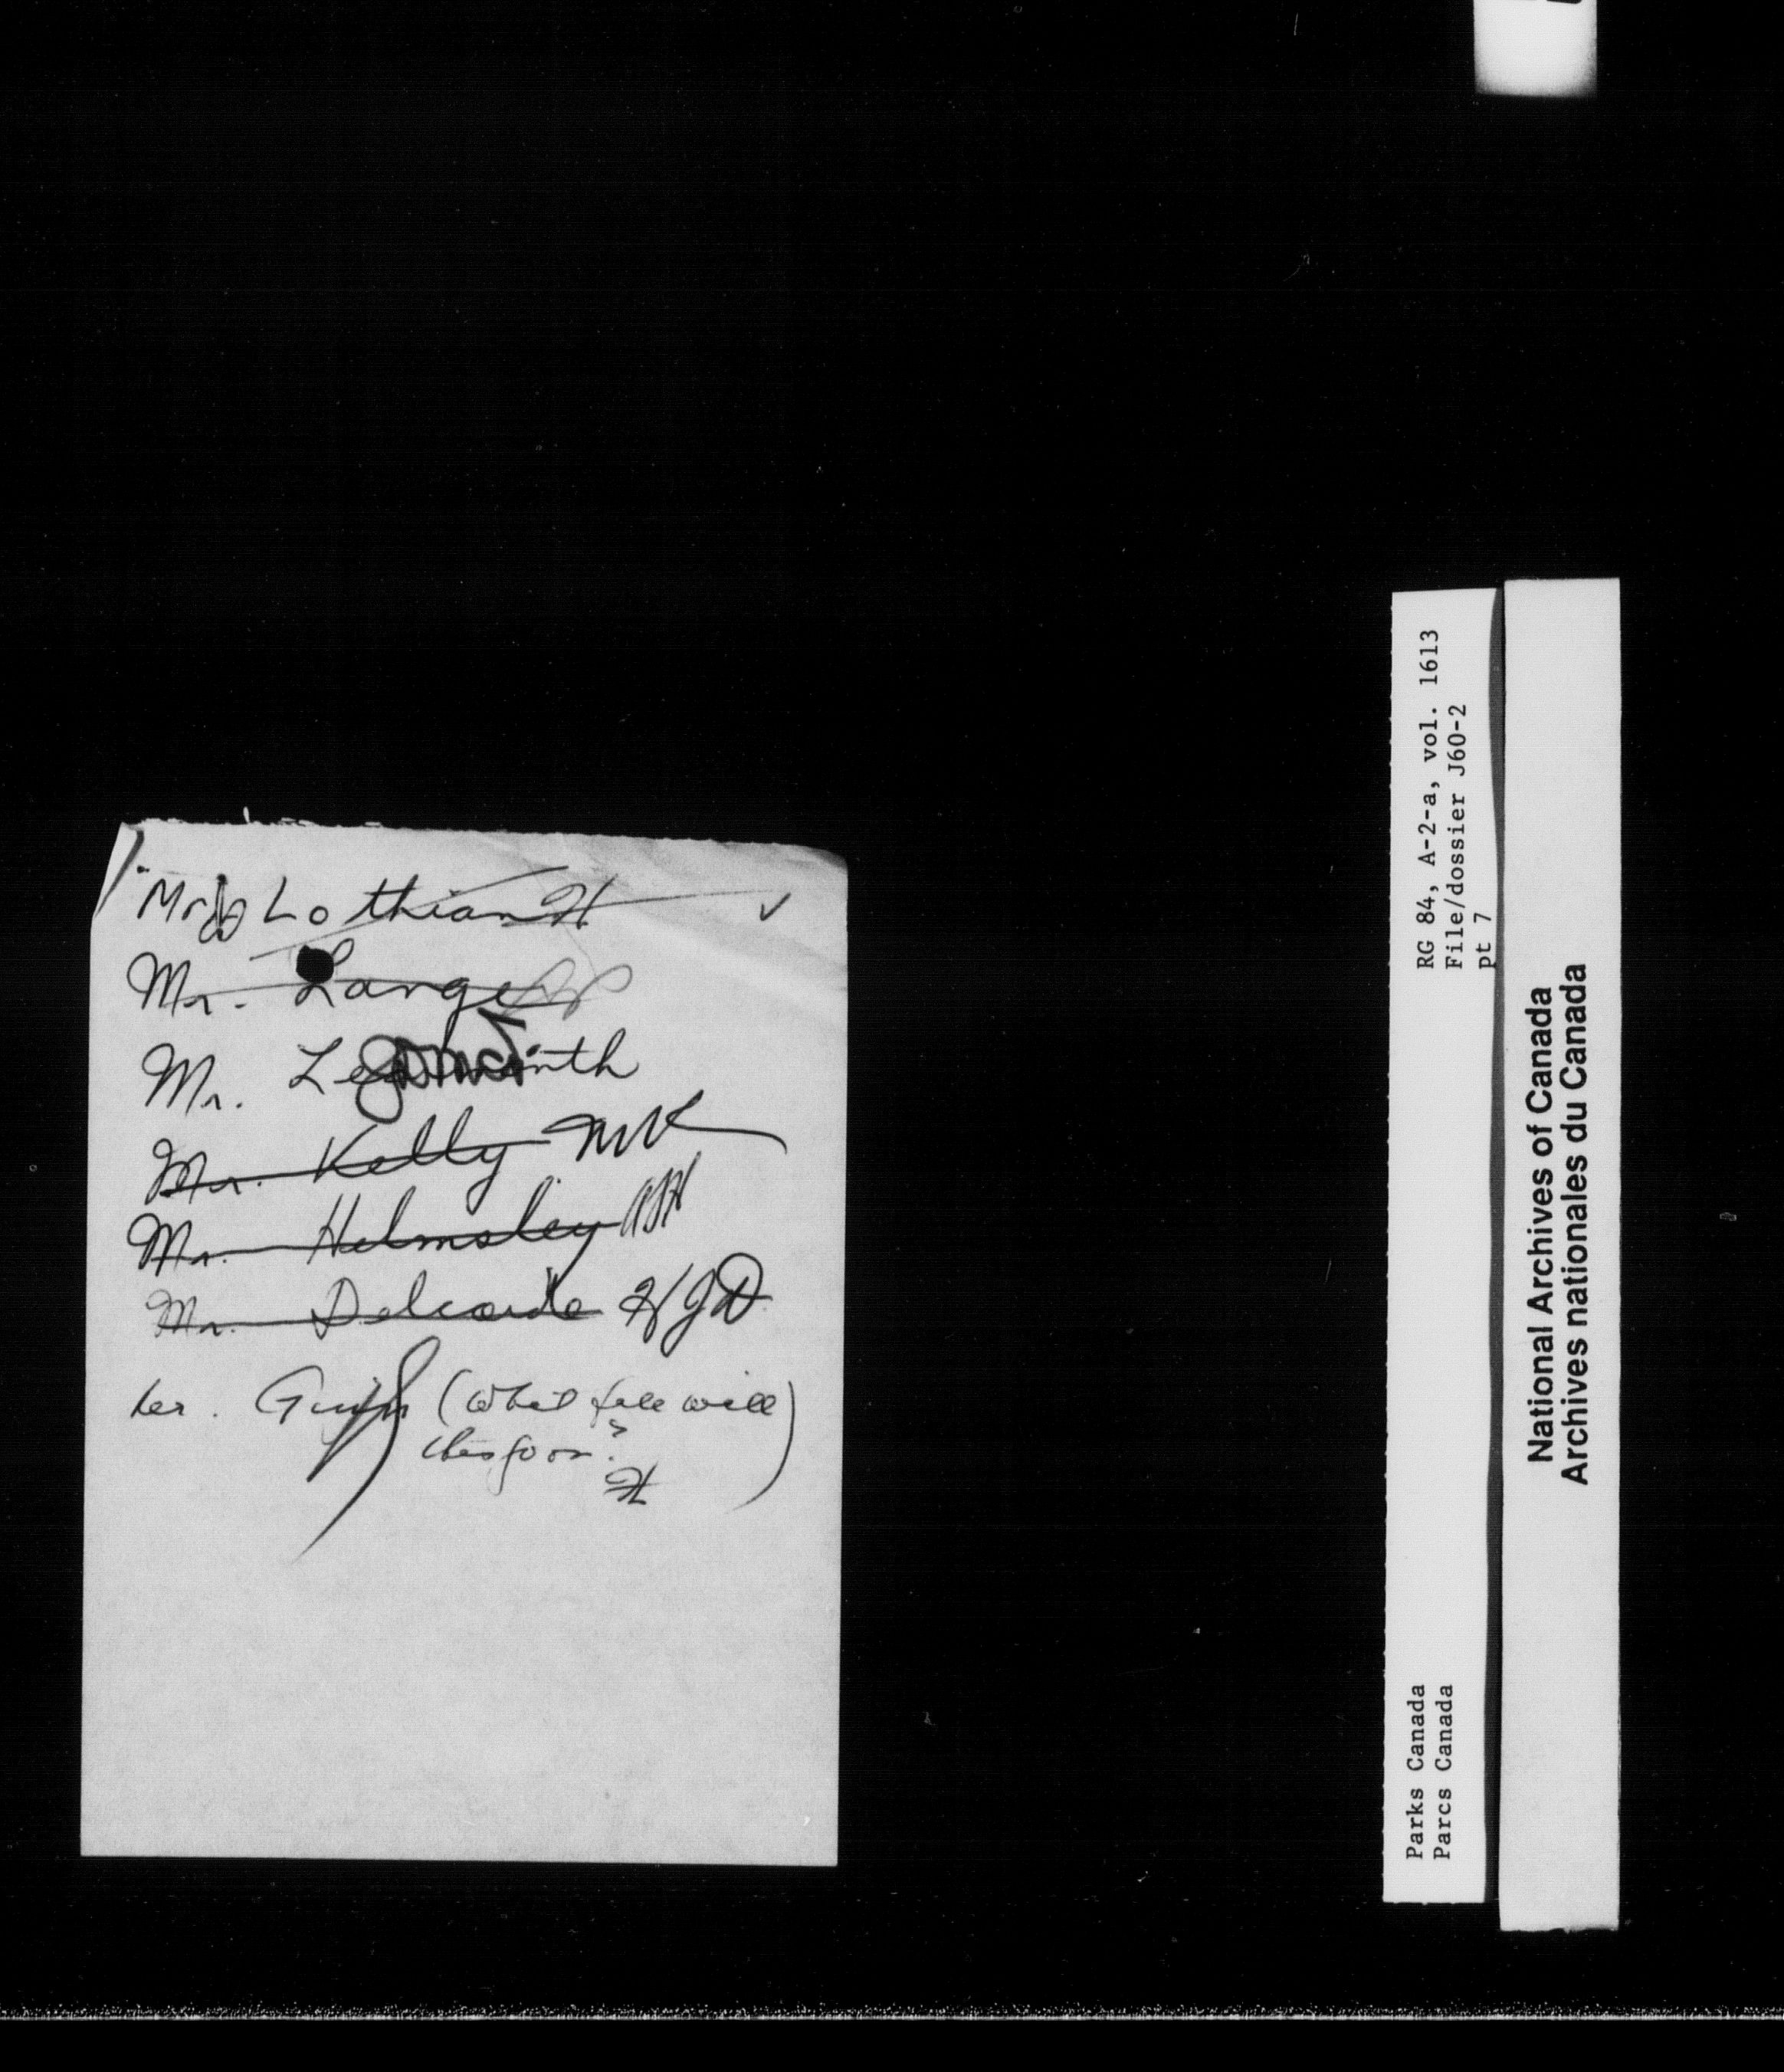 Mr. Lothian H ✓
Mr. Lange
Mr.
Mr. Kelly MK
Mr. Helmsley
Mr. HJD
(What file will
this go on?)
H
RG 84, A-2-a, vol. 1613
File/dossier J60-2
pt 7
Parks Canada
Parcs Canada
National Archives of Canada
Archives nationales du Canada